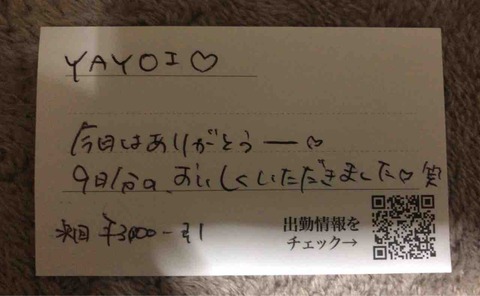 YAYOI♡
今日はありがとうー♡
9日分の、おいしくいただきました♡笑
次回 ¥3,000-引
出勤情報を
チェック→